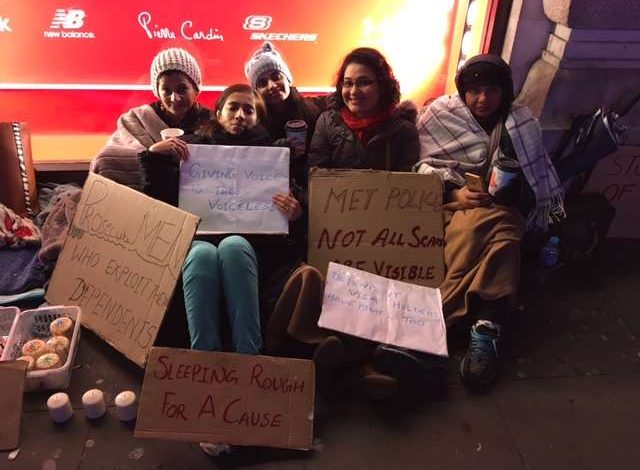 new balance
Pierre Cardin
SKECHERS
GIVING VOICE
TO THE
VOICELESS
PROSECUTE MEN
WHO EXPLOIT THEIR
DEPENDENTS
MET POLICE
NOT ALL SCARS
ARE VISIBLE
VISA HOLDERS
HAVE RIGHTS TOO
SLEEPING ROUGH
FOR A CAUSE